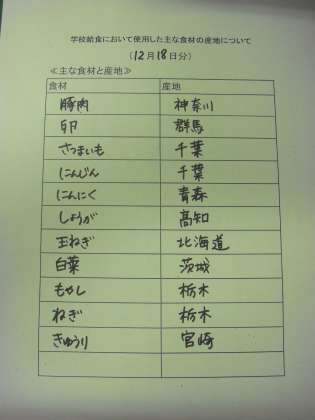 学校給食において使用した主な食材の産地について
(12月18日分)
≪主な食材と産地≫
食材 産地
豚肉 神奈川
卵 群馬
さつまいも 千葉
にんじん 千葉
にんにく 青森
しょうが 高知
玉ねぎ 北海道
白菜 茨城
もやし 栃木
ねぎ 栃木
きゅうり 宮崎